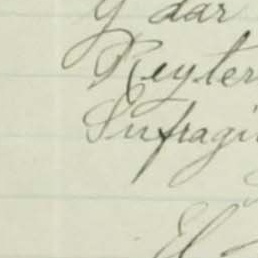 y dar
Reyter
Sufragi
El